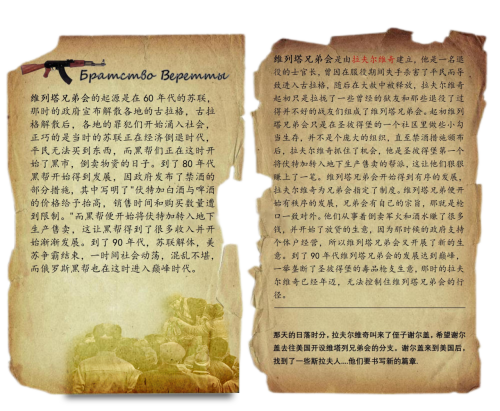 Братство Веретты
维列塔兄弟会的起源是在 60 年代的苏联,
那时的政府宣布解散各地的古拉格, 古拉
格解散后, 各地的罪犯们开始涌入社会,
正巧的是当时的苏联正在经济倒退时代,
平民无法买到东西, 而黑帮们正在这时开
始了黑市, 倒卖物资的日子。到了 80 年代
黑帮开始得到发展, 因政府发布了禁酒的
部分措施, 其中写明了"伏特加白酒与啤酒
的价格给予抬高, 销售时间和购买数量遭
到限制。"而黑帮便开始将伏特加转入地下
生产售卖, 这让黑帮得到了很多收入并开
始渐渐发展。到了 90 年代, 苏联解体, 美
苏争霸结束, 一时间社会动荡, 混乱不堪,
而俄罗斯黑帮也在这时进入巅峰时代。
维列塔兄弟会是由拉夫尔维奇建立, 他是一名退
役的士官长, 曾因在服役期间失手杀害了平民而导
致进入古拉格, 随后在大赦中被释放, 拉夫尔维奇
起初只是拉拢了一些曾经的狱友和那些退役了过
得并不好的战友们组成了维列塔兄弟会。起初维列
塔兄弟会只是在圣彼得堡的一个社区里做些小勾
当生存, 并不是个庞大的组织, 直至禁酒措施颁布
后, 拉夫尔维奇抓住了机会, 他是圣彼得堡第一个
将伏特加转入地下生产售卖的帮派, 这让他们狠狠
赚上了一笔。维列塔兄弟会开始得到有序的发展,
拉夫尔维奇为兄弟会指定了制度。维列塔兄弟便开
始有秩序的发展, 兄弟会有自己的宗旨, 那就是枪
口一致对外。他们从事着倒卖军火和酒水赚了很多
钱, 并开始了放贷的生意, 因为那时候的政府支持
个体户经营, 所以维列塔兄弟会又开展了新的生
意。到了 90 年代维列塔兄弟会的发展达到巅峰,
一举垄断了圣彼得堡的毒品枪支生意, 那时的拉夫
尔维奇已经年迈, 无法控制住维列塔兄弟会的行
径。
那天的日落时分, 拉夫尔维奇叫来了侄子谢尔盖, 希望谢尔
盖去往美国开设维塔列兄弟会的分支, 谢尔盖来到美国后,
找到了一些斯拉夫人....他们要书写新的篇章.